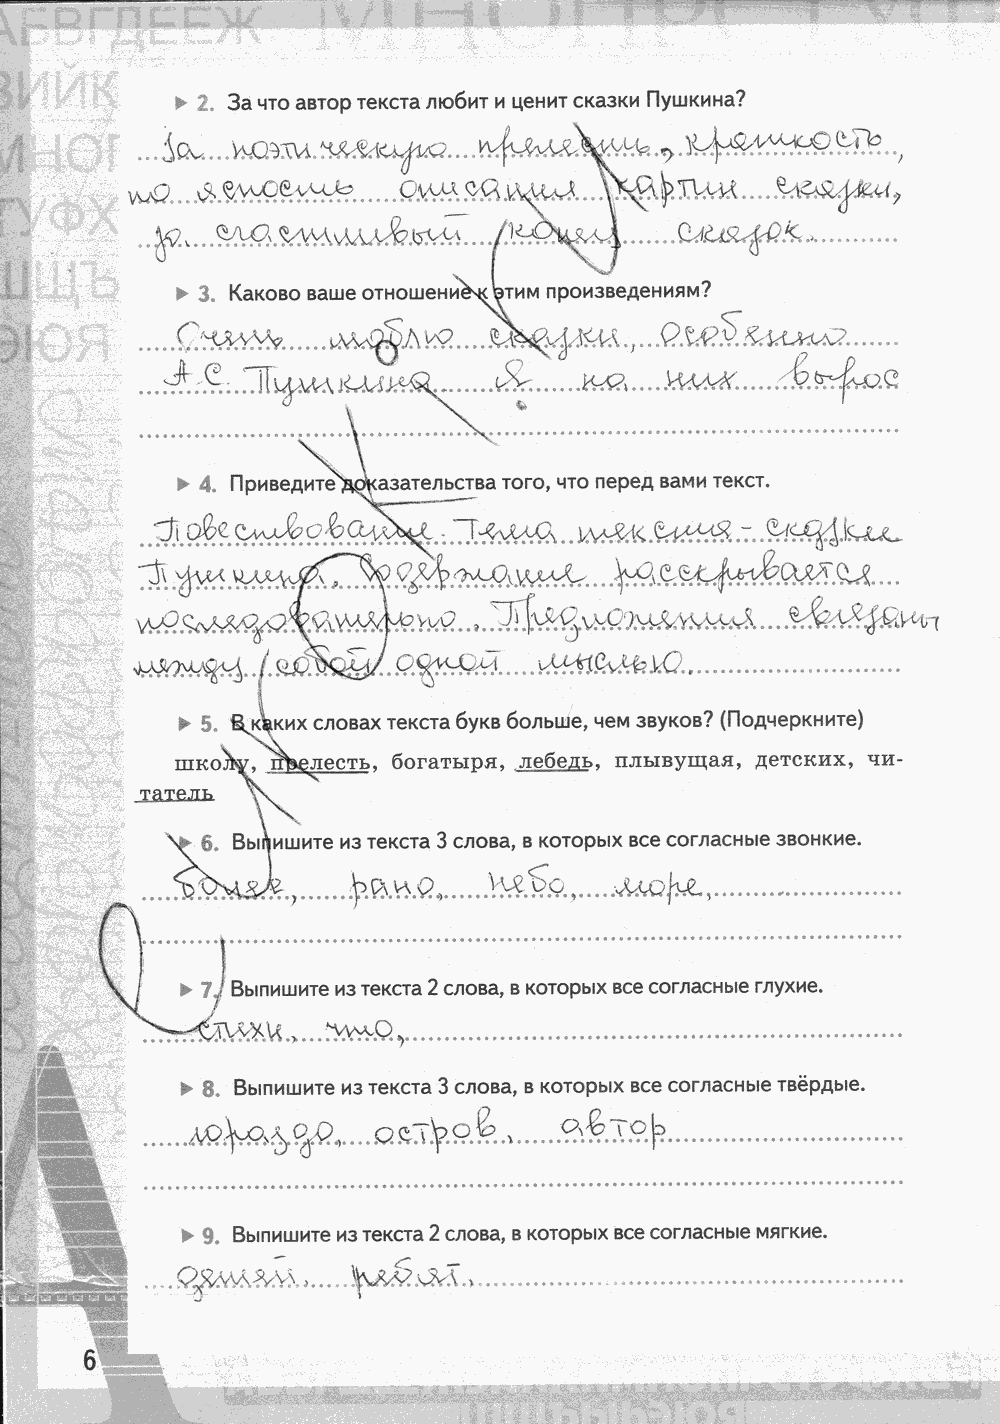 2. За что автор текста любит и ценит сказки Пушкина?
За поэтическую прелесть, краткость,
по ясность описания картин сказки,
за счастливый конец сказок.
3. Каково ваше отношение к этим произведениям?
Очень люблю сказки, особенно
А.С. Пушкина. Я на них вырос
4. Приведите доказательства того, что перед вами текст.
Повествование. Тема текста - сказки
Пушкина. Содержание расскрывается
последовательно. Предложения связаны
между собой одной мыслью.
5. В каких словах текста букв больше, чем звуков? (Подчеркните)
школу, прелесть, богатыря, лебедь, плывущая, детских, чи-
татель
6. Выпишите из текста 3 слова, в которых все согласные звонкие.
более, рано, небо, море,
7. Выпишите из текста 2 слова, в которых все согласные глухие.
стихи, что,
8. Выпишите из текста 3 слова, в которых все согласные твёрдые.
гораздо, остров, автор
9. Выпишите из текста 2 слова, в которых все согласные мягкие.
детей, ребят,
6